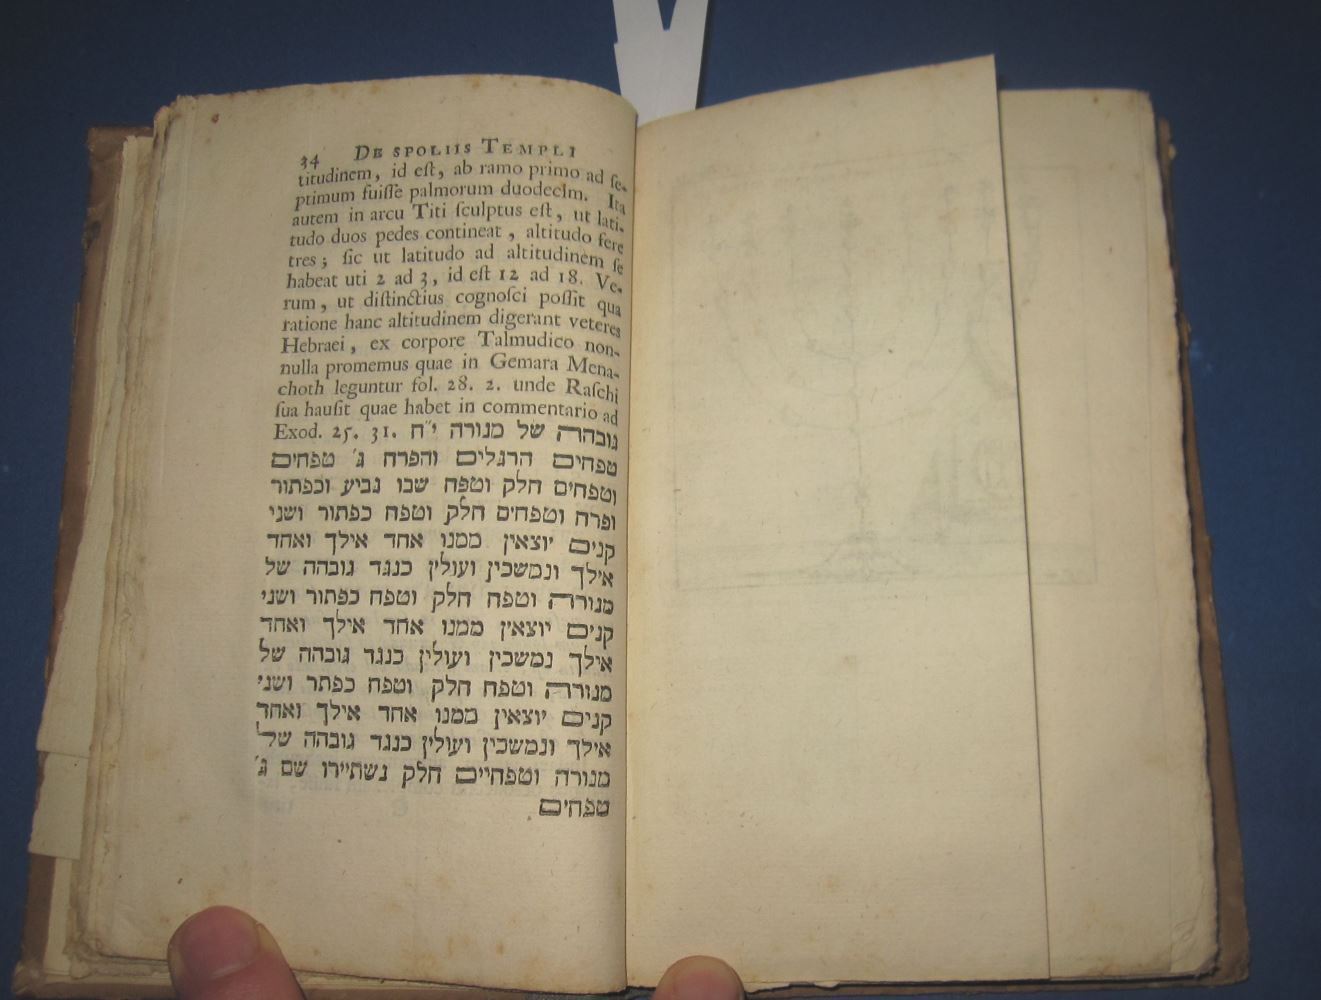 34 DE SPOLIIS TEMPLI
titudinem, id eſt, ab ramo primo ad ſe-
ptimum fuiſſe palmorum duodecim. Ita
autem in arcu Titi ſculptus eſt, ut lati-
tudo duos pedes contineat, altitudo fere
tres; ſic ut latitudo ad altitudinem ſe
habeat uti 2 ad 3, id eſt 12 ad 18. Ve-
rum, ut diſtinctius cognoſci poſſit qua
ratione hanc altitudinem digerant veteres
Hebraei, ex corpore Talmudico non-
nulla promemus quae in Gemara Mena-
choth leguntur fol. 28. 2. unde Raſchi
ſua hauſit quae habet in commentario ad
Exod. 25. 31. גובהרה של מנורה י״ח
טפחים הרגלים והפרח ג׳ טפחים
וטפחים חלק וטפח שבו גביע וכפתור
ופרח וטפחים חלק וטפח כפתור ושני
קנים יוצאין ממנו אחד אילך ואחד
אילך ונמשכין ועולין כנגד גובהה של
מנורה וטפח חלק וטפח כפתור ושני
קנים יוצאין ממנו אחד אילך ואחד
אילך נמשכין ועולין כנגד גובהה של
מנורה וטפח חלק וטפח כפתר ושני
קנים יוצאין ממנו אחד אילך ואחד
אילך ונמשכין ועולין כנגד גובהה של
מנורה וטפחיים חלק נשתיירו שם ג׳
טפחים